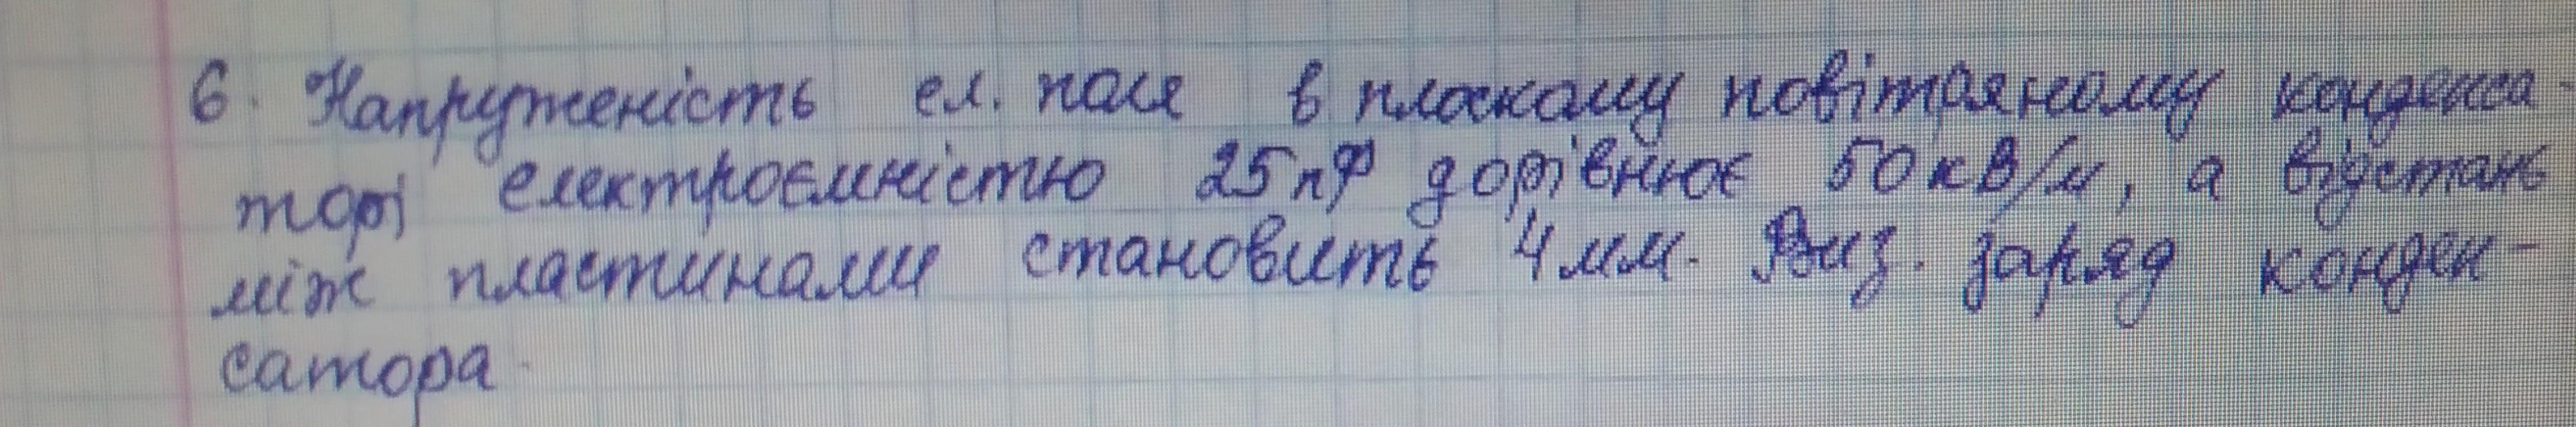 6. Напруженість ел. поля в плоскому повітряному конденса-
торі електроємністю 25 пФ дорівнює 50 кВ/м, а відстань
між пластинами становить 4 мм. Виз. заряд конден-
сатора.